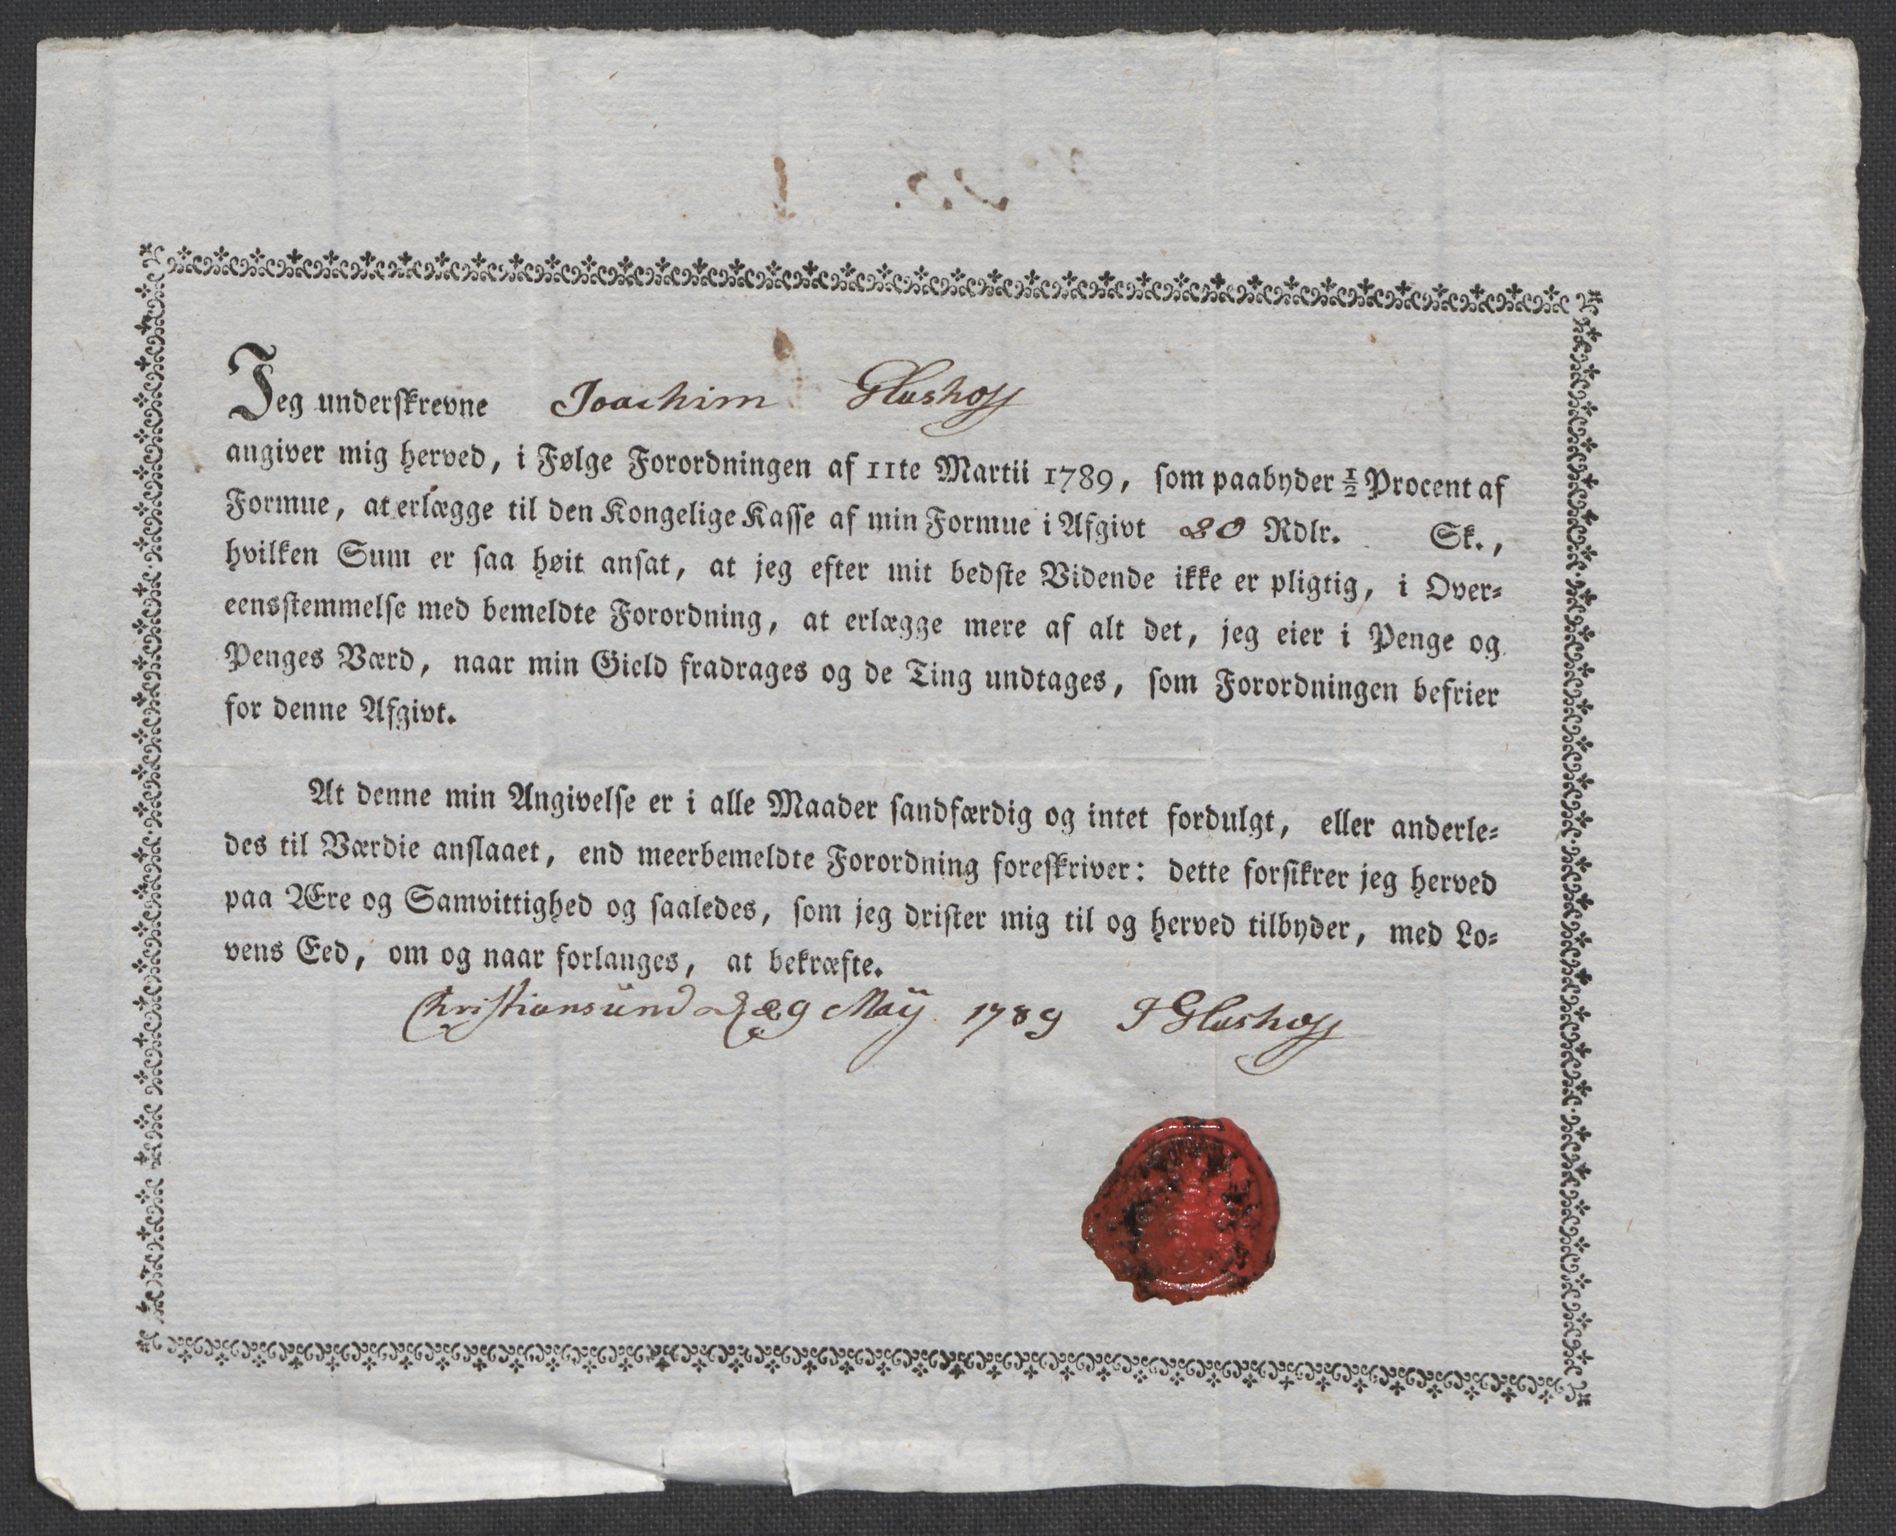 Jeg underskrevne Joachim Glashoff
angiver mig herved, i Følge Forordningen af 11te Martii 1789, som paabyder ½ Procent af
Formue, at erlægge til den Kongelige Kasse af min Formue i Afgivt 20 Rdlr. Sk.,
hvilken Sum er saa høit ansat, at jeg efter mit bedste Vidende ikke er pligtig, i Over-
eensstemmelse med bemeldte Forordning, at erlægge mere af alt det, jeg eier i Penge og
Penges Værd, naar min Gield fradrages og de Ting undtages, som Forordningen befrier
for denne Afgivt.
At denne min Angivelse er i alle Maader sandfærdig og intet fordulgt, eller anderle-
des til Værdie anslaaet, end meerbemeldte Forordning foreskriver: dette forsikrer jeg herved
paa Ære og Samvittighed og saaledes, som jeg drister mig til og herved tilbyder, med Lo-
vens Eed, om og naar forlanges, at bekræfte.
Christiansund d 29 Maÿ 1789 J Glashoff